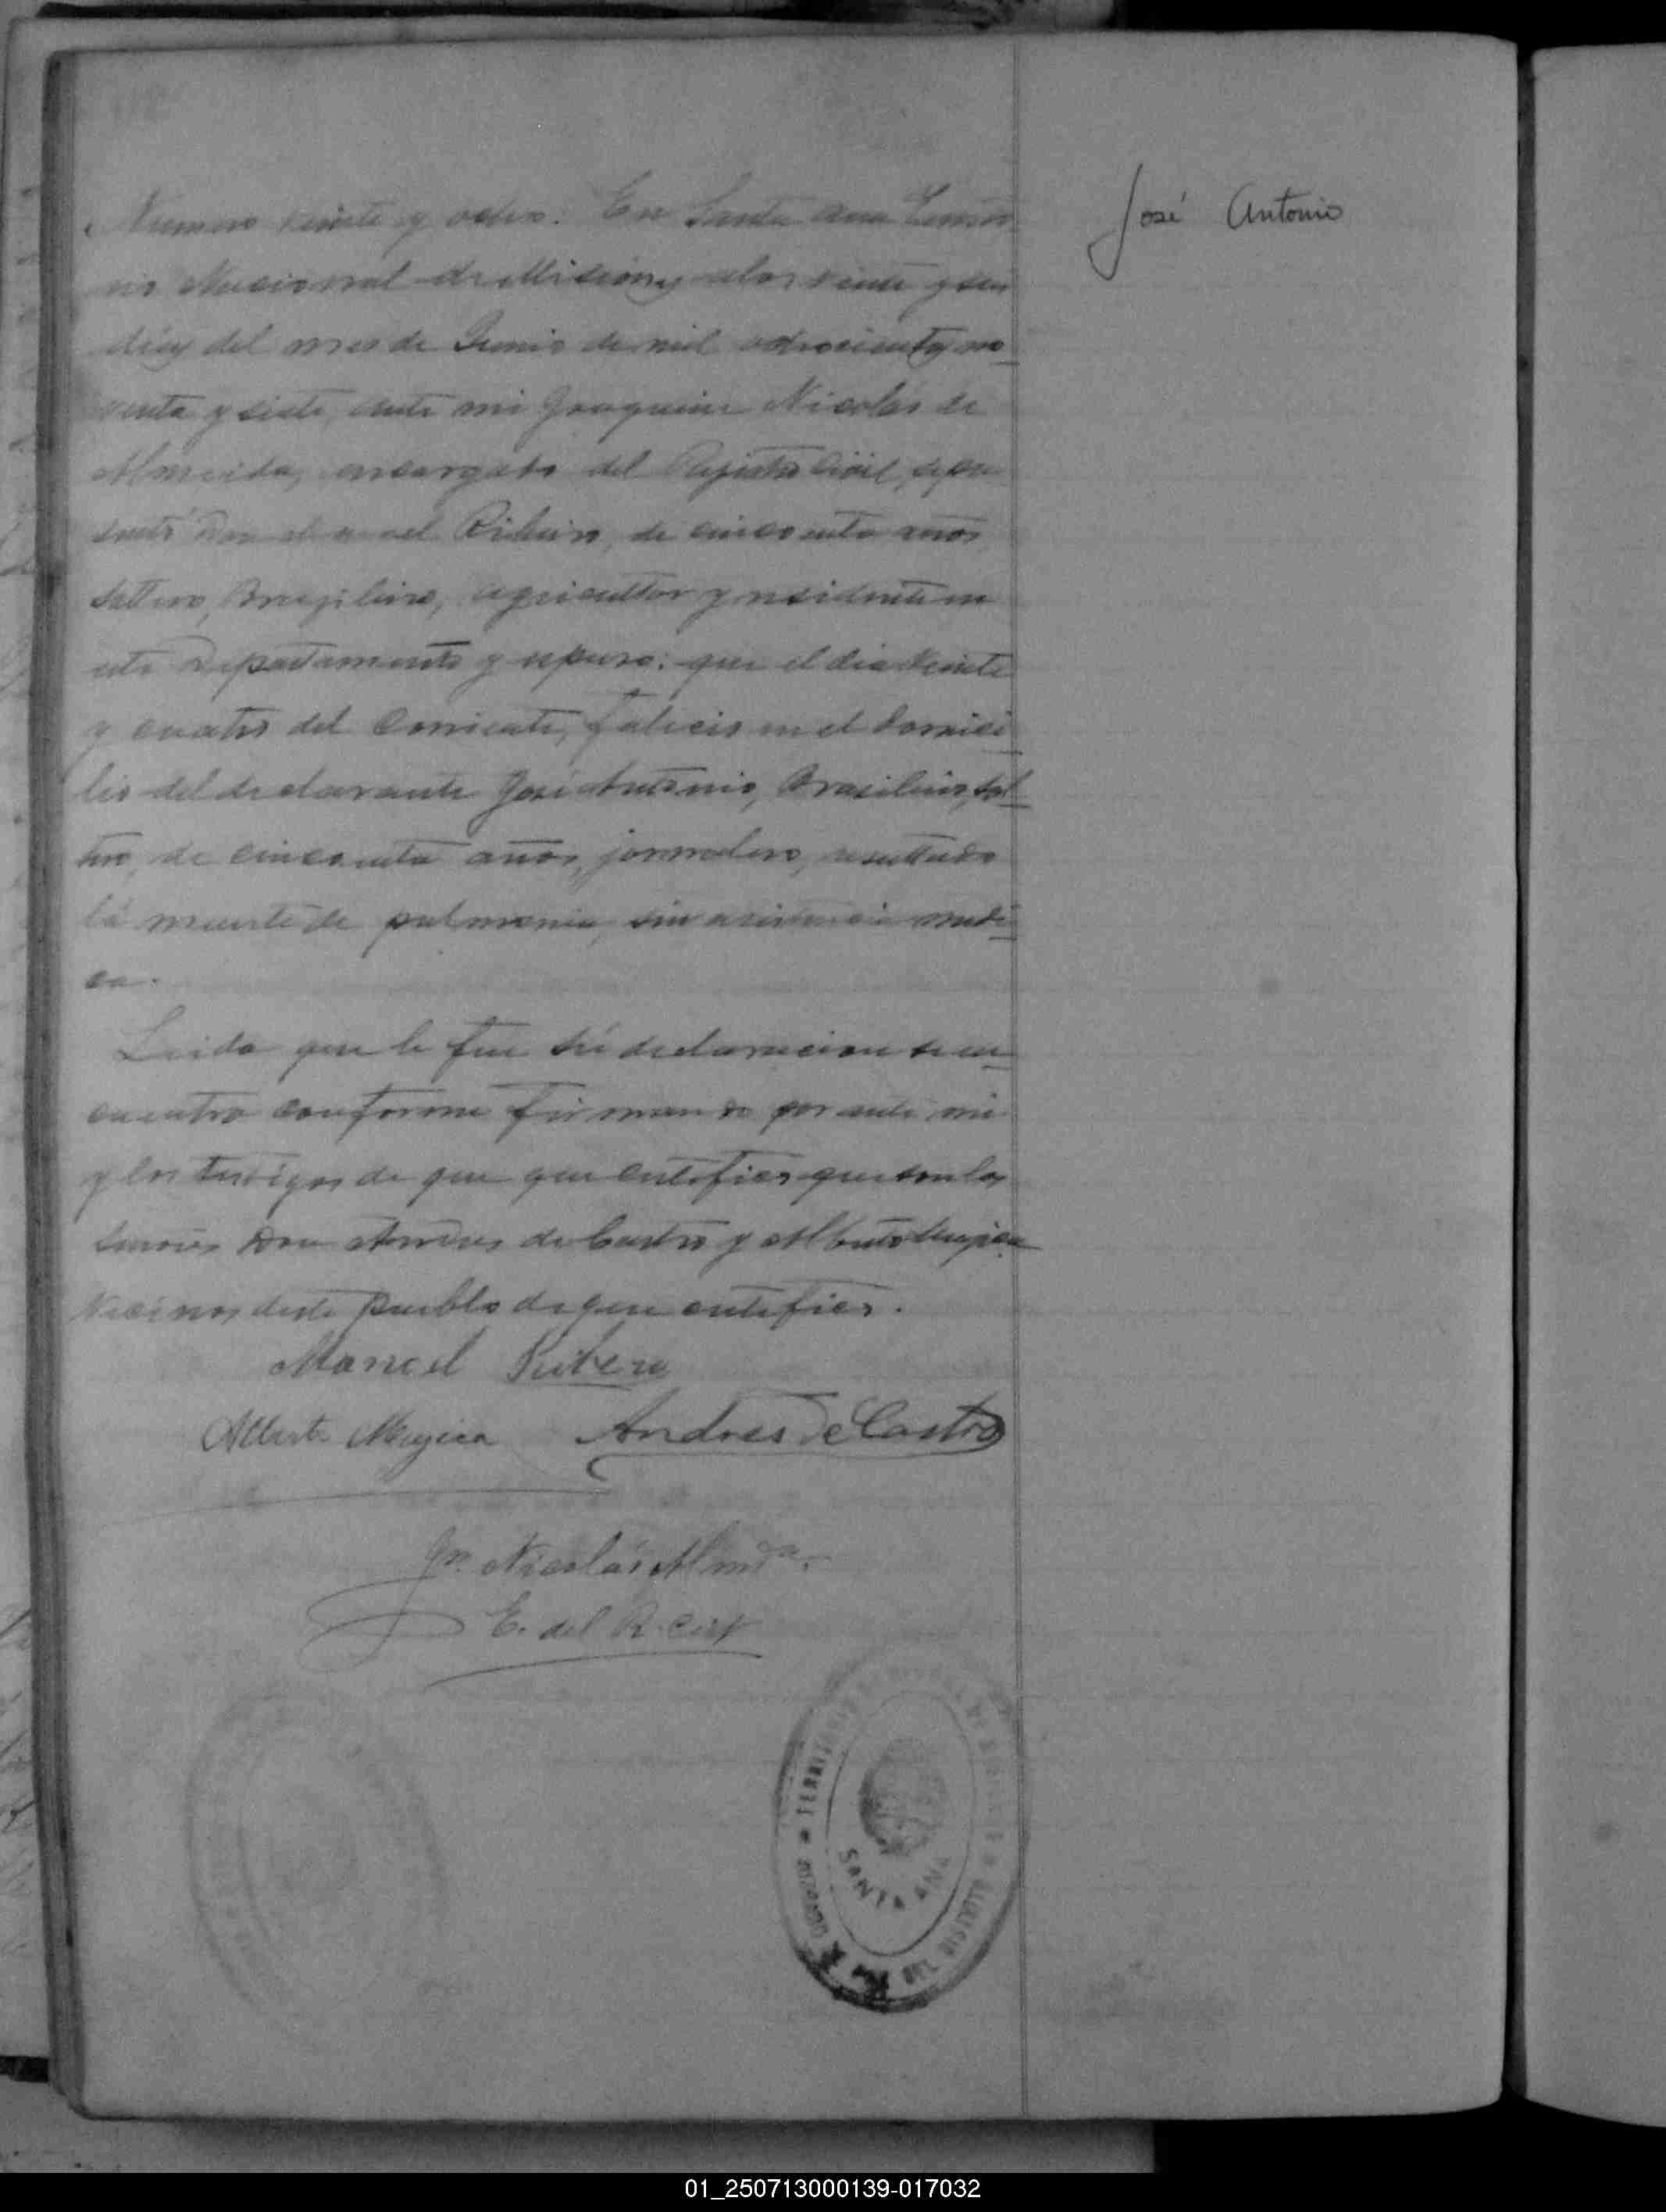 José Antonio
Numero veinte y ocho. En Santa Ana Territo
rio Nacional de Misiones alos veinte y seis
dias del mes de Junio de mil ochocientos no
venta y siete, ante mi Joaquin Nicolás de
Almeida, encargado del Rejistro Civil, se pre
sentó Don Manuel Ribeiro, de cincuenta años
soltero, Brazileiro, agricultor y residente en
este Departamento y espuso: que el dia veinte
y cuatro del corriente, falecio en el domici
lio del declarante José Antonio, Brasileiro, sol
tero, de cincuenta años, jornalero, resultado
la muerte de pulmonia, sin asistencia medi
ca.
Leida que le fue su declaracion se en
cuentra conforme firmando por ante mi
y los testigos de que que certifico que son los
Señores Don Andres de Castro y Alberto Mujica
Vecinos deste pueblo de que certifico.
Manoel Ribero
Alberto Mujica Andres de Castro
Jn. Nicolás Almda.
E. del R. Civil
TERRITORIO
SANTA ANA
DISTRITO